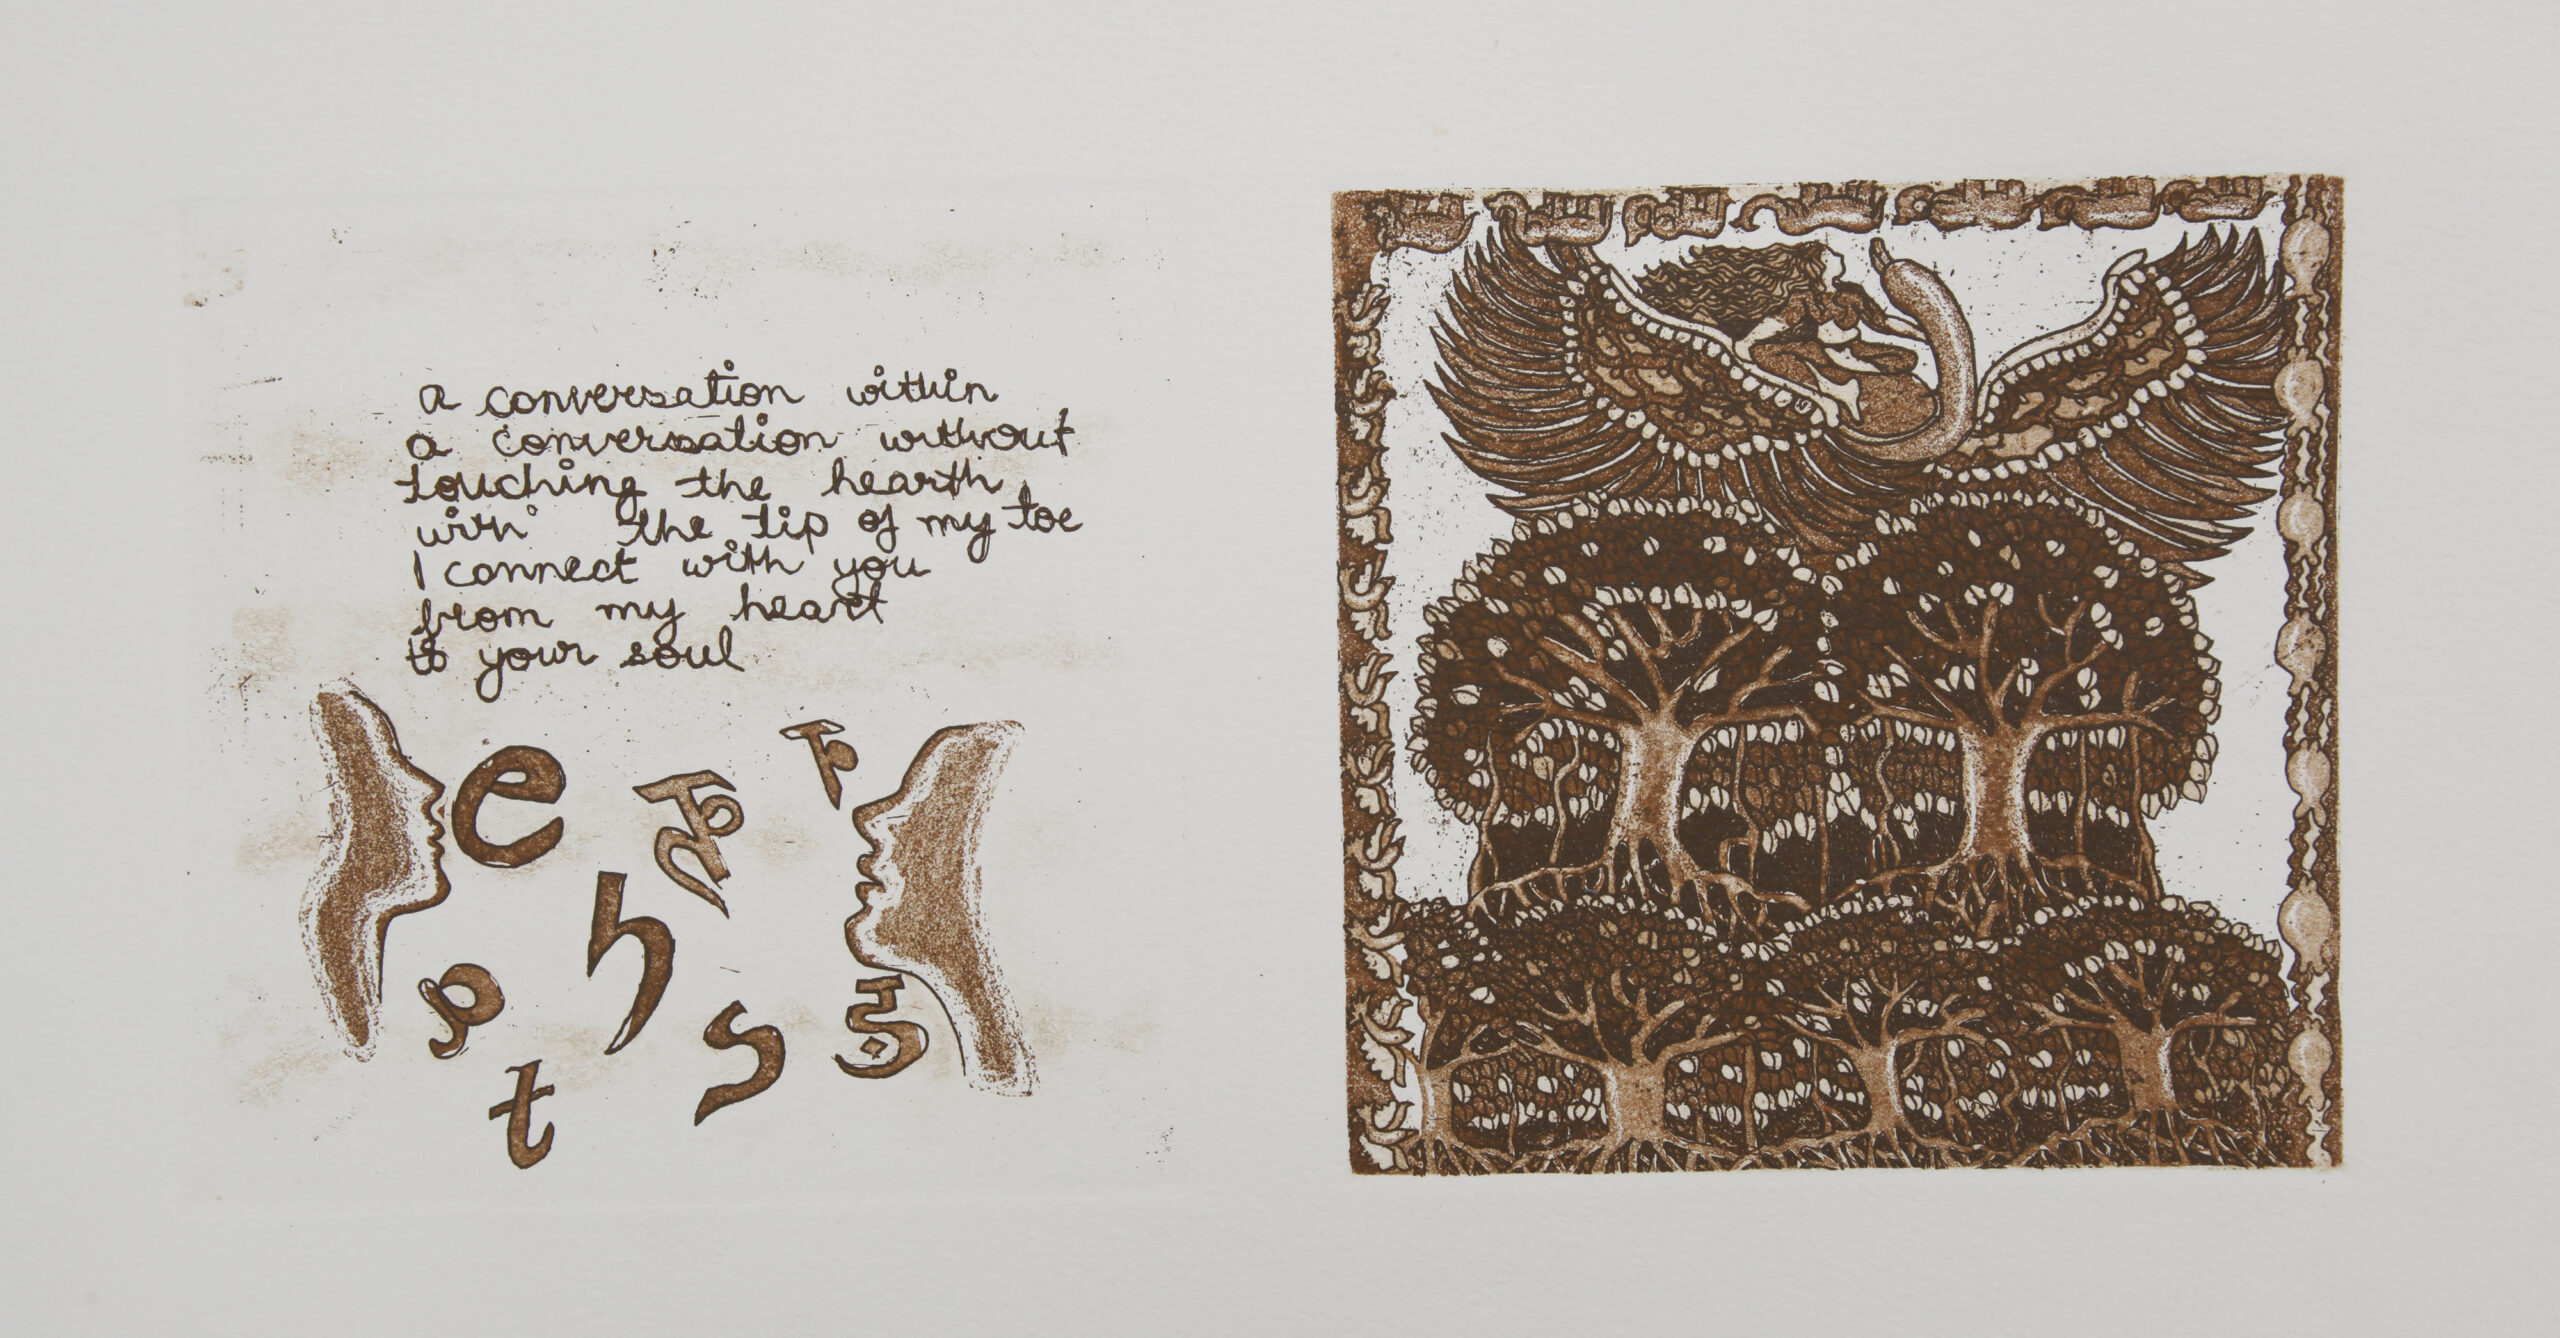 a conversation within
a conversation without
touching the hearth
with the tip of my toe
I connect with you
from my heart
to your soul
e
h
p
t
s
इ